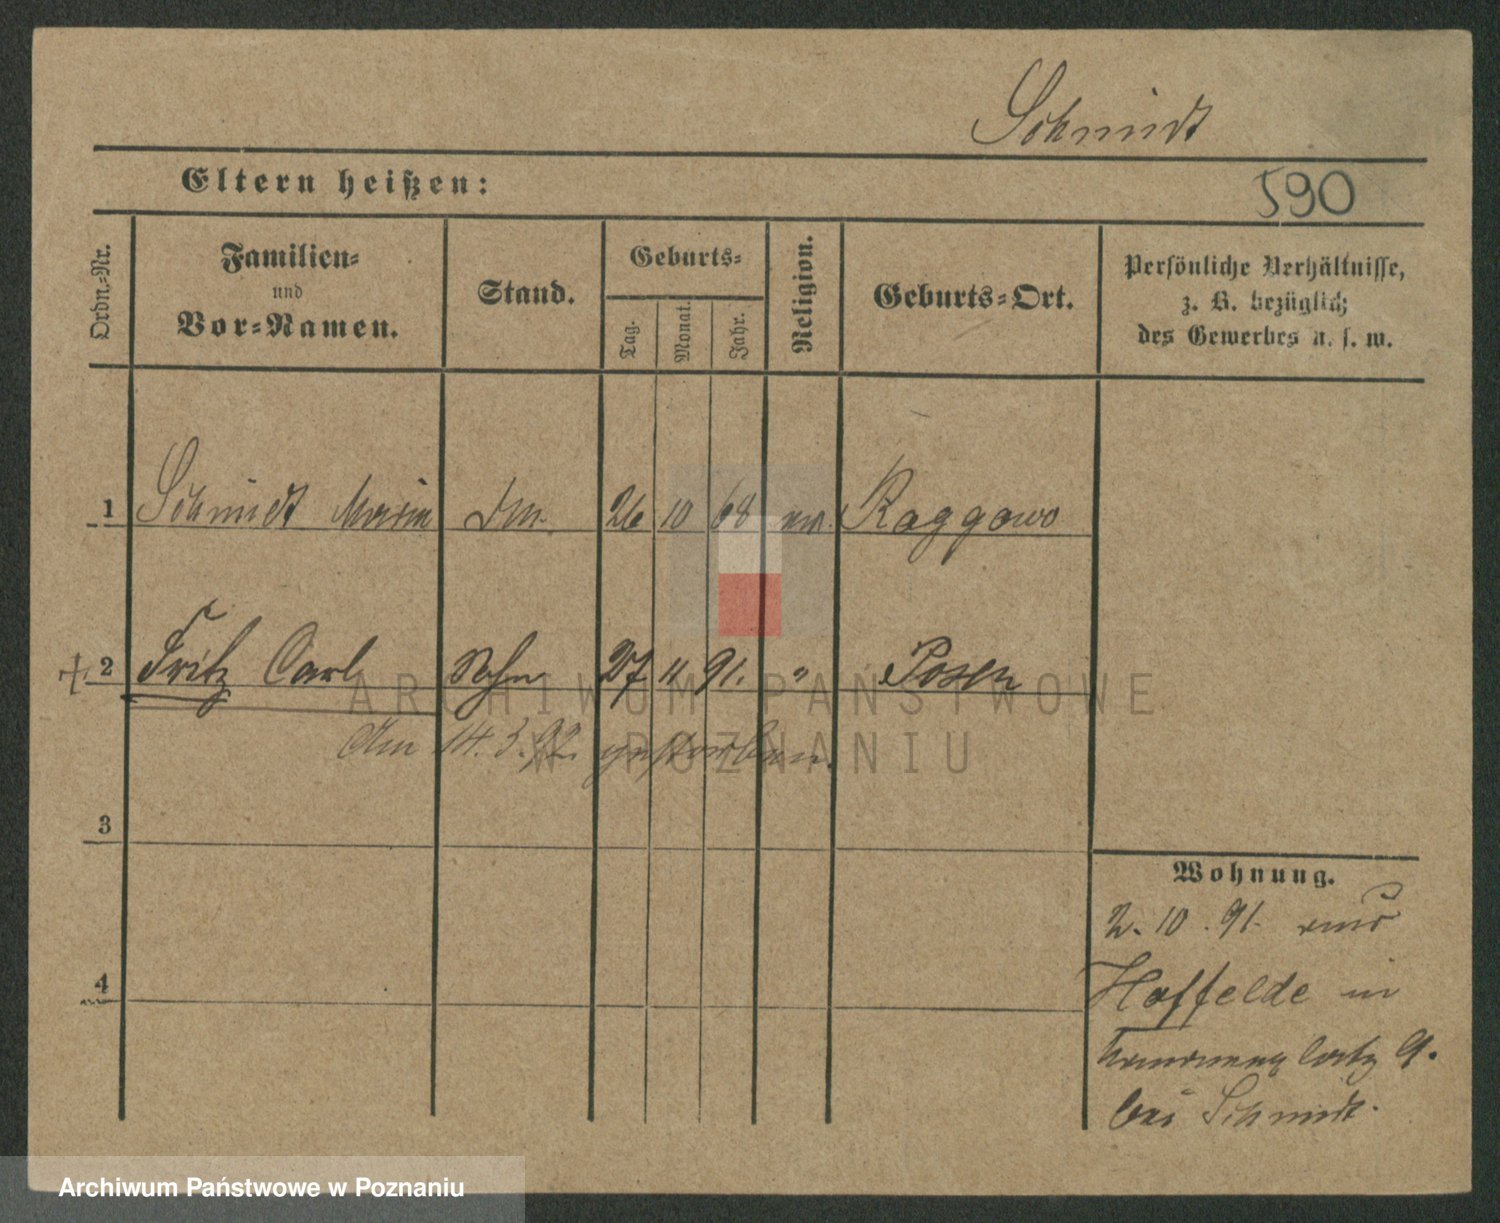 Schmidt
Eltern heißen:
590
Ordn.-Nr.
Familien-
und
Vor-Namen.
Stand.
Geburts-
Tag.
Monat.
Jahr.
Religion.
Geburts-Ort.
Persönliche Verhältnisse,
z. B. bezüglich
des Gewerbes u. s. w.
1 Schmidt Maria 26 10 68 Raggowo
2 Fritz Carl Sohn 27 11 91. " Posen
Am 14.3.92. gestorben.
3
4
Wohnung.
2. 10. 91. aus
Hoffelde in
9.
bei Schmidt.
ARCHIWUM PAŃSTWOWE
W POZNANIU
Archiwum Państwowe w Poznaniu